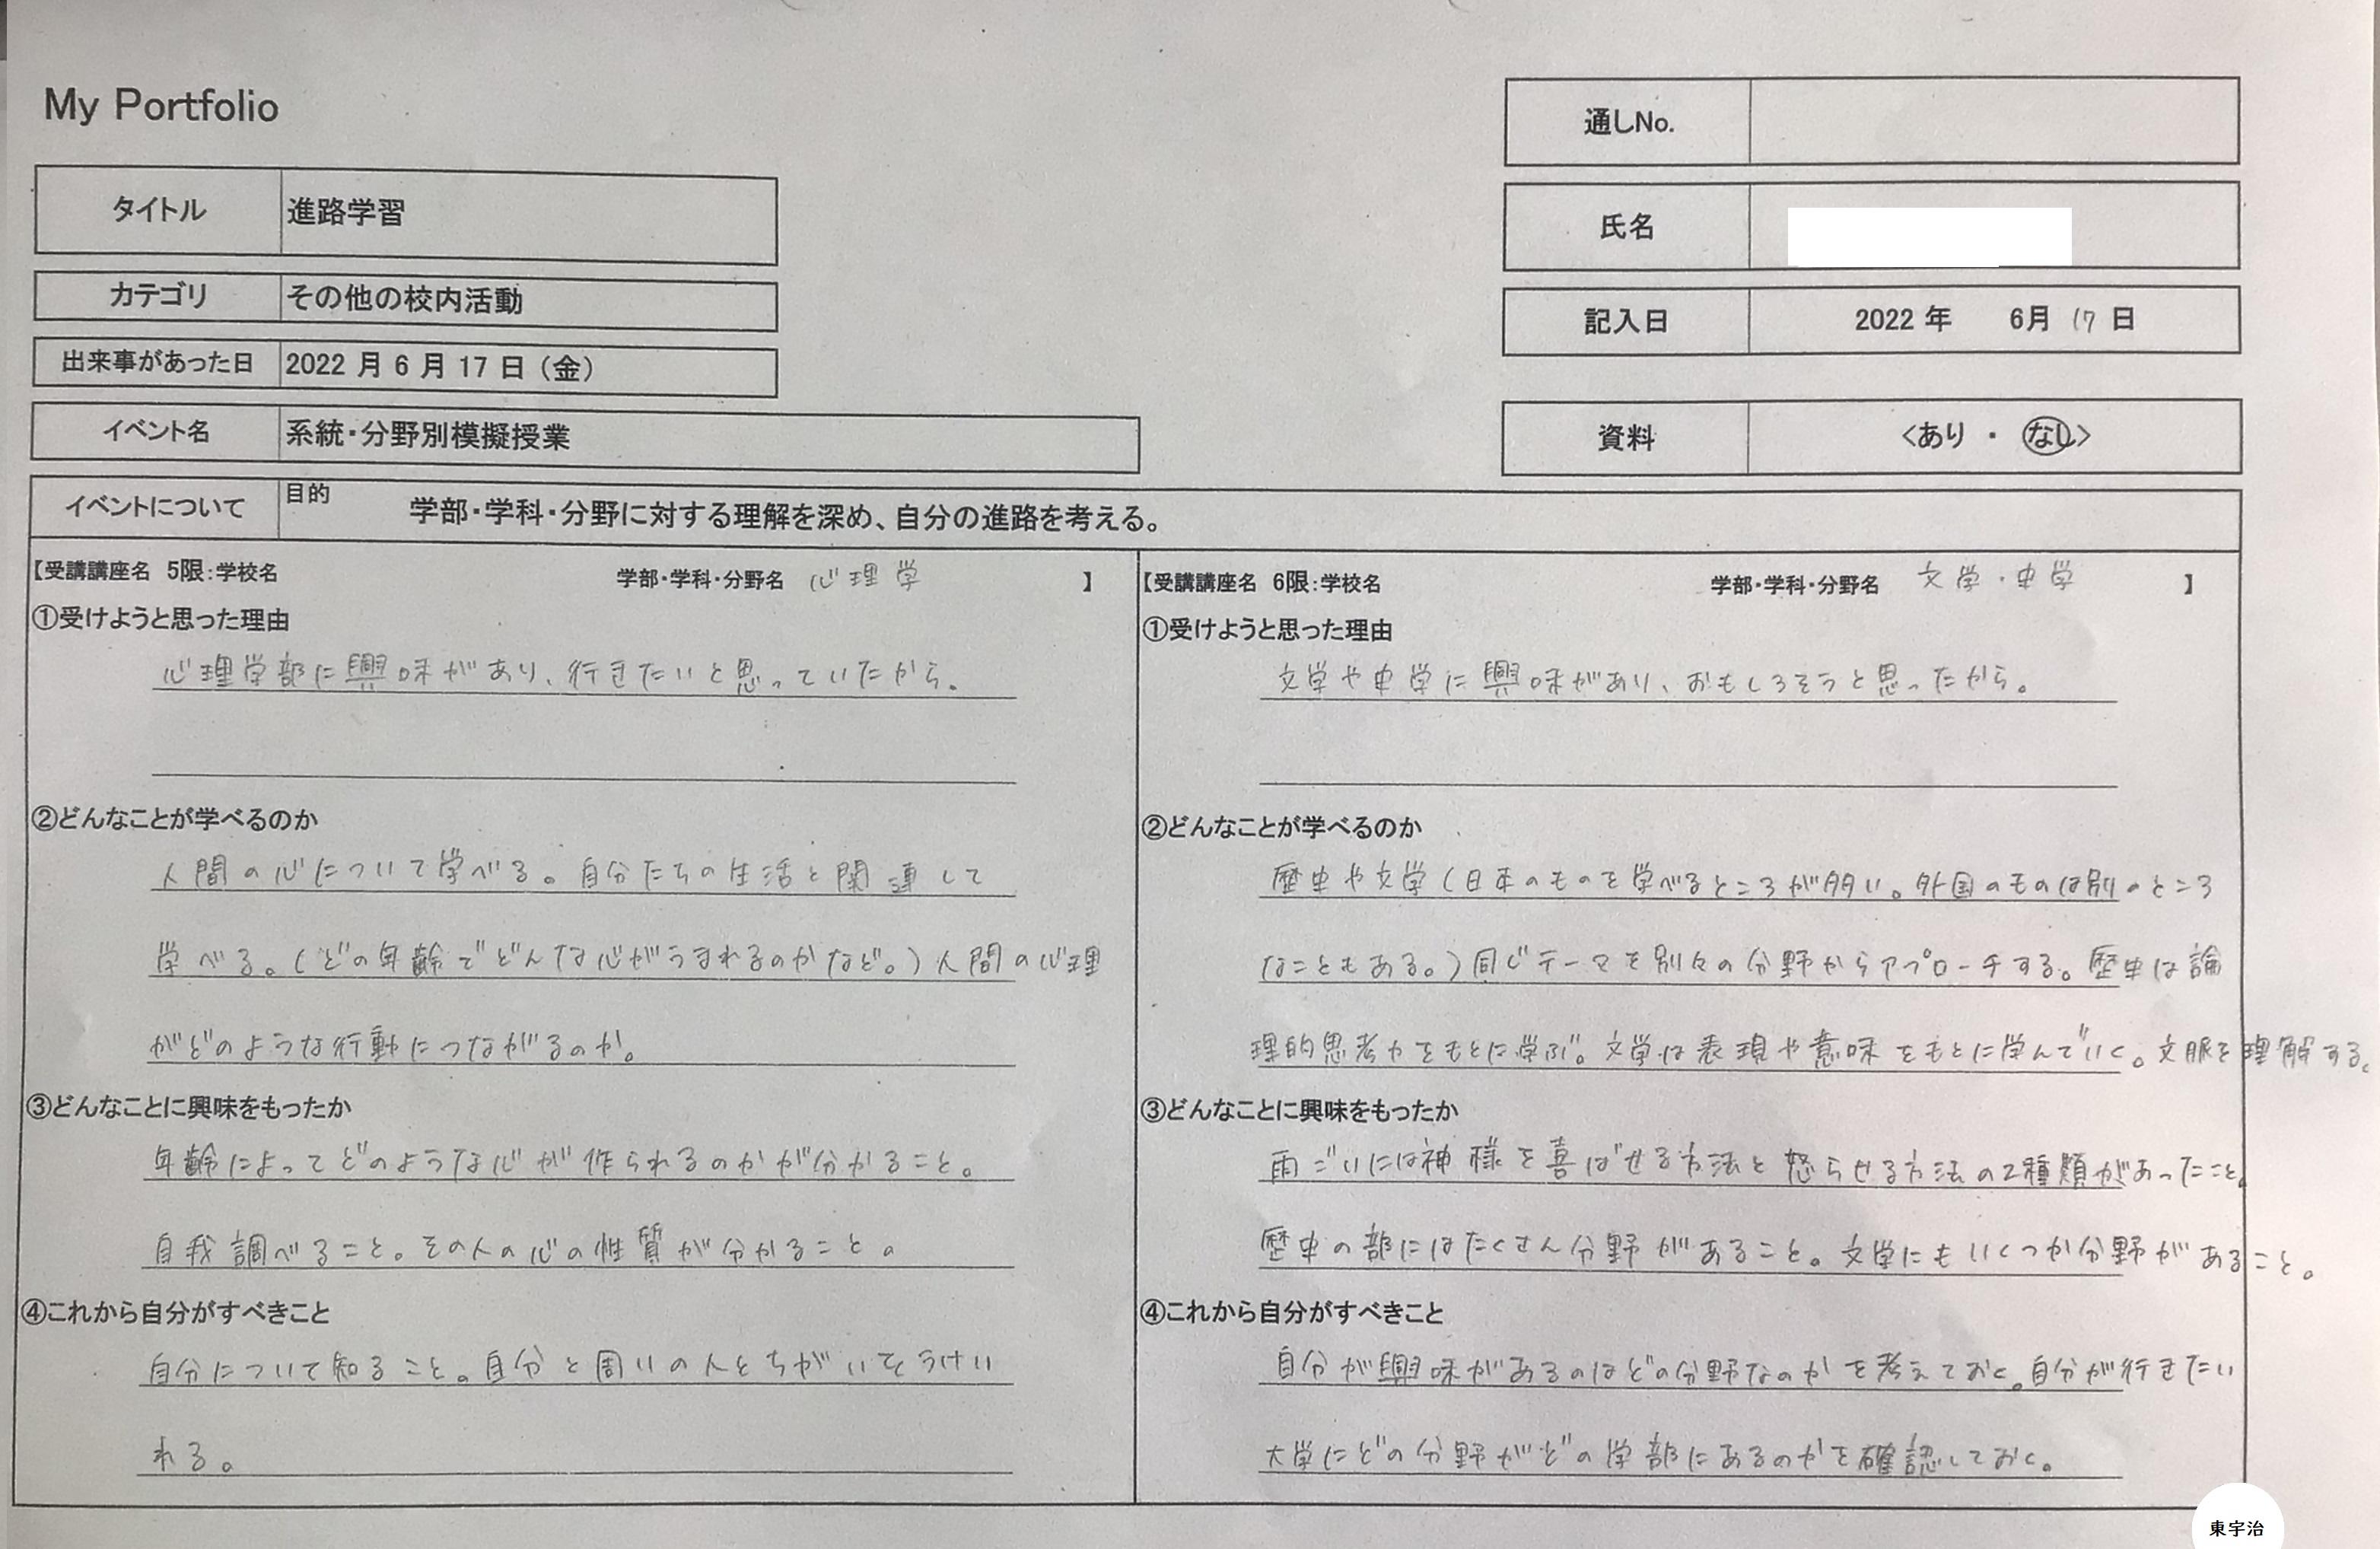 My Portfolio
通しNo.
タイトル 進路学習
氏名
カテゴリ その他の校内活動
記入日 2022 年 6月 17 日
出来事があった日 2022 月 6 月 17 日（金）
イベント名 系統・分野別模擬授業
資料 <あり ・ なし>
イベントについて 目的 学部・学科・分野に対する理解を深め、自分の進路を考える。
【受講講座名 5限:学校名 学部・学科・分野名 心理学 】
①受けようと思った理由
心理学部に興味があり、行きたいと思っていたから。
②どんなことが学べるのか
人間の心について学べる。自分たちの生活と関連して
学べる。(どの年齢でどんな心がうまれるのかなど。)人間の心理
がどのような行動につながるのか。
③どんなことに興味をもったか
年齢によってどのような心が作られるのかが分かること。
自我調べること。その人の心の性質が分かること。
④これから自分がすべきこと
自分について知ること。自分と周りの人とちがいをうけい
れる。
【受講講座名 6限:学校名 学部・学科・分野名 文学・史学 】
①受けようと思った理由
文学や史学に興味があり、おもしろそうと思ったから。
②どんなことが学べるのか
歴史や文学(日本のものを学べるところが多い。外国のものは別のところ
なこともある。)同じテーマを別々の分野からアプローチする。歴史は論
理的思考力をもとに学ぶ。文学は表現や意味をもとに学んでいく。文脈を理解する。
③どんなことに興味をもったか
雨ごいには神様を喜ばせる方法と怒らせる方法の2種類があったこと。
歴史の部にはたくさん分野があること。文学にもいくつか分野があること。
④これから自分がすべきこと
自分が興味があるのはどの分野なのかを考えておく。自分が行きたい
大学にどの分野がどの学部にあるのかを確認しておく。
東宇治